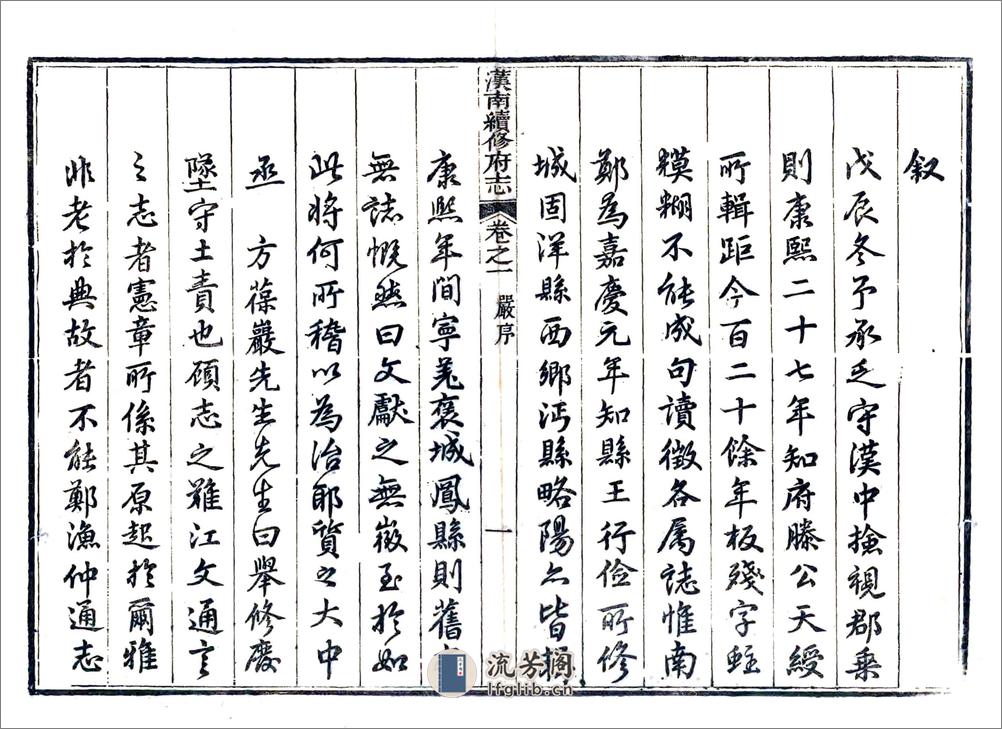 叙
戊辰冬予承乏守漢中撿視郡乗
則康熙二十七年知府滕公天綬
所輯距今百二十餘年板殘字蛀
糢糊不能成句讀徵各属誌惟南
鄭為嘉慶元年知縣王行儉所修
城固洋縣西鄉沔縣略陽亦皆
漢南續修府志
卷之一
嚴序
一
康熙年間寧羌褒城鳳縣則舊
無誌慨然曰文獻之無徵至於如
此將何所稽以為治耶質之大中
丞 方葆巖先生先生曰舉修廢
墜守土責也顧志之難江文通言
之志者憲章所係其原起於爾雅
非老於典故者不能鄭漁仲通志
流芳阁
lfglib.cn